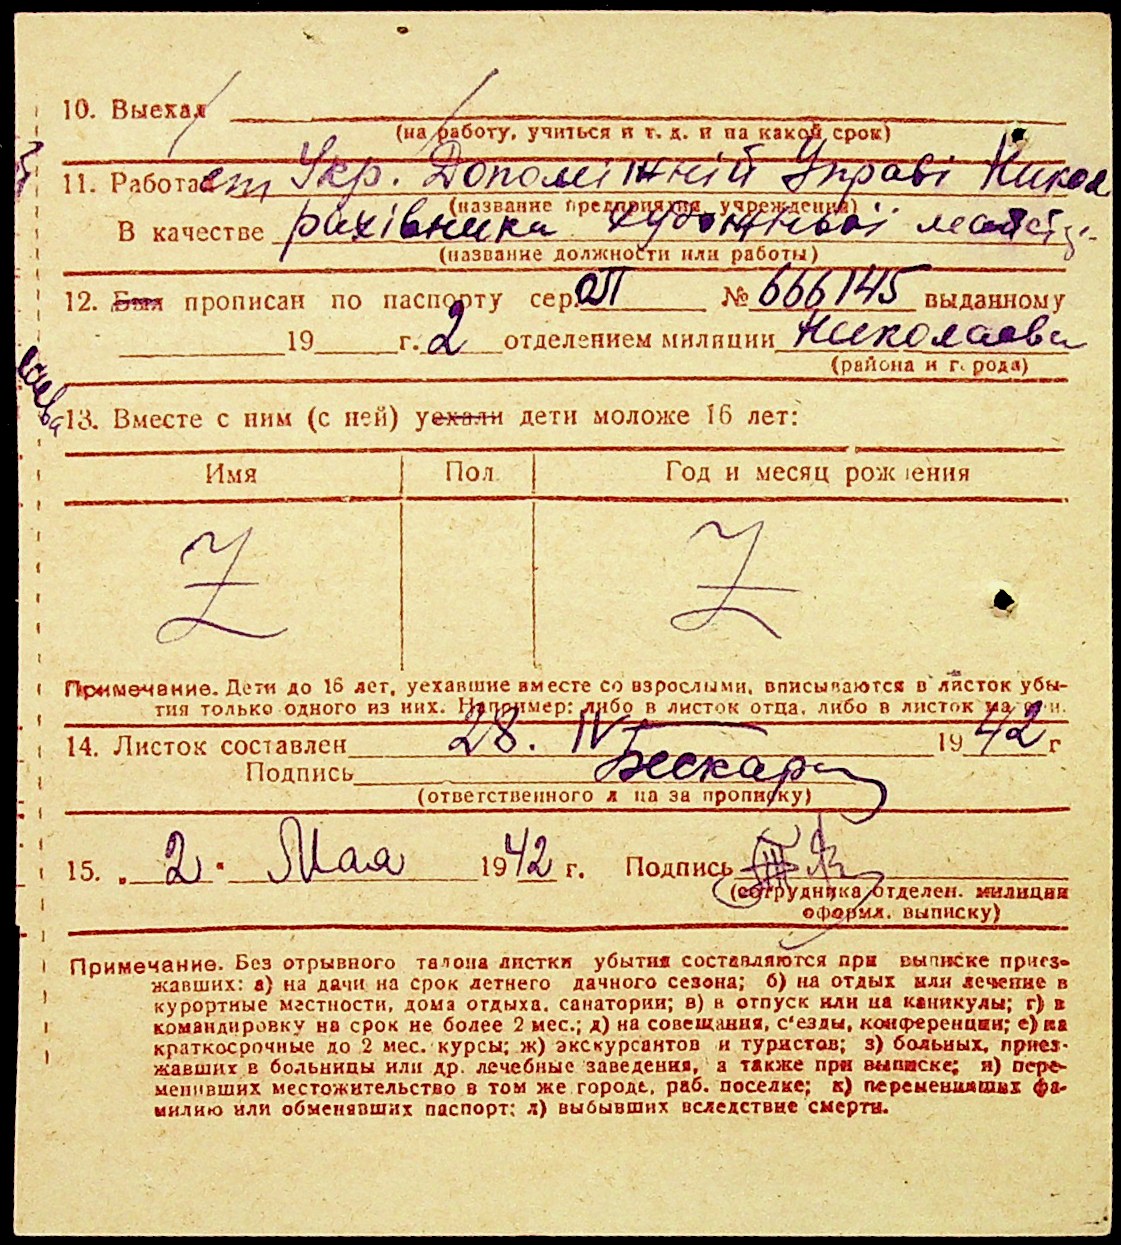 10. Выехал
(на работу, учиться и т. д. и на какой срок)
11. Работает Укр. Допоміжній Управі Никол
(название предприятия, учреждения)
В качестве рахівника художньої
(название должности или работы)
12. Был прописан по паспорту сер. № 666145 выданному
19 г. 2 отделением милиции Николаева
(района и города)
13. Вместе с ним (с ней) уехали дети моложе 16 лет:
Имя Пол. Год и месяц рождения
Z Z
Примечание. Дети до 16 лет, уехавшие вместе со взрослыми, вписываются в листок убы-
тия только одного из них. Например: либо в листок отца, либо в листок матери.
14. Листок составлен 28. IV 1942 г
Подпись
(ответственного лица за прописку)
15. „ 2 " Мая 1942 г. Подпись
(сотрудника отделен. милиции
оформл. выписку)
Примечание. Без отрывного талона листки убытия составляются при выписке приез-
жавших: а) на дачи на срок летнего дачного сезона; б) на отдых или лечение в
курортные местности, дома отдыха, санатории; в) в отпуск или на каникулы; г) в
командировку на срок не более 2 мес.; д) на совещания, с'езды, конференции; е) на
краткосрочные до 2 мес. курсы; ж) экскурсантов и туристов; з) больных, приез-
жавших в больницы или др. лечебные заведения, а также при выписке; и) пере-
менивших местожительство в том же городе, раб. поселке; к) переменивших фа-
милию или обменявших паспорт; л) выбывших вследствие смерти.